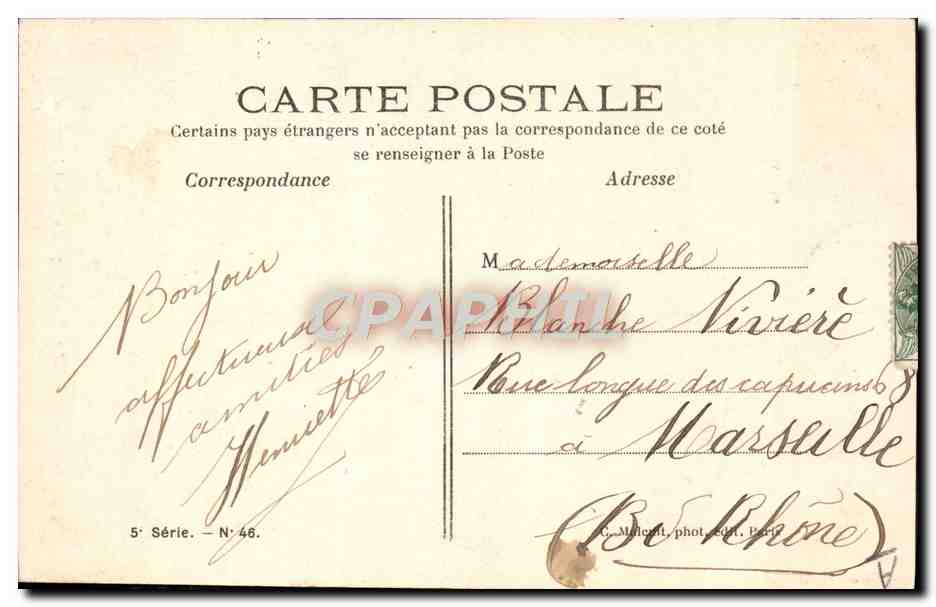 CARTE POSTALE
Certains pays étrangers n'acceptant pas la correspondance de ce coté
se renseigner à la Poste
Correspondance
Adresse
Bonjour
affectueuses
amitiés
Henriette
Mademoiselle
Blanche Vivière
Rue longue des capucins 68
à Marseille
(B. Rhône)
5e Série. - No 46.
C. Malcuit, phot. edit. Paris
CPAPHIL